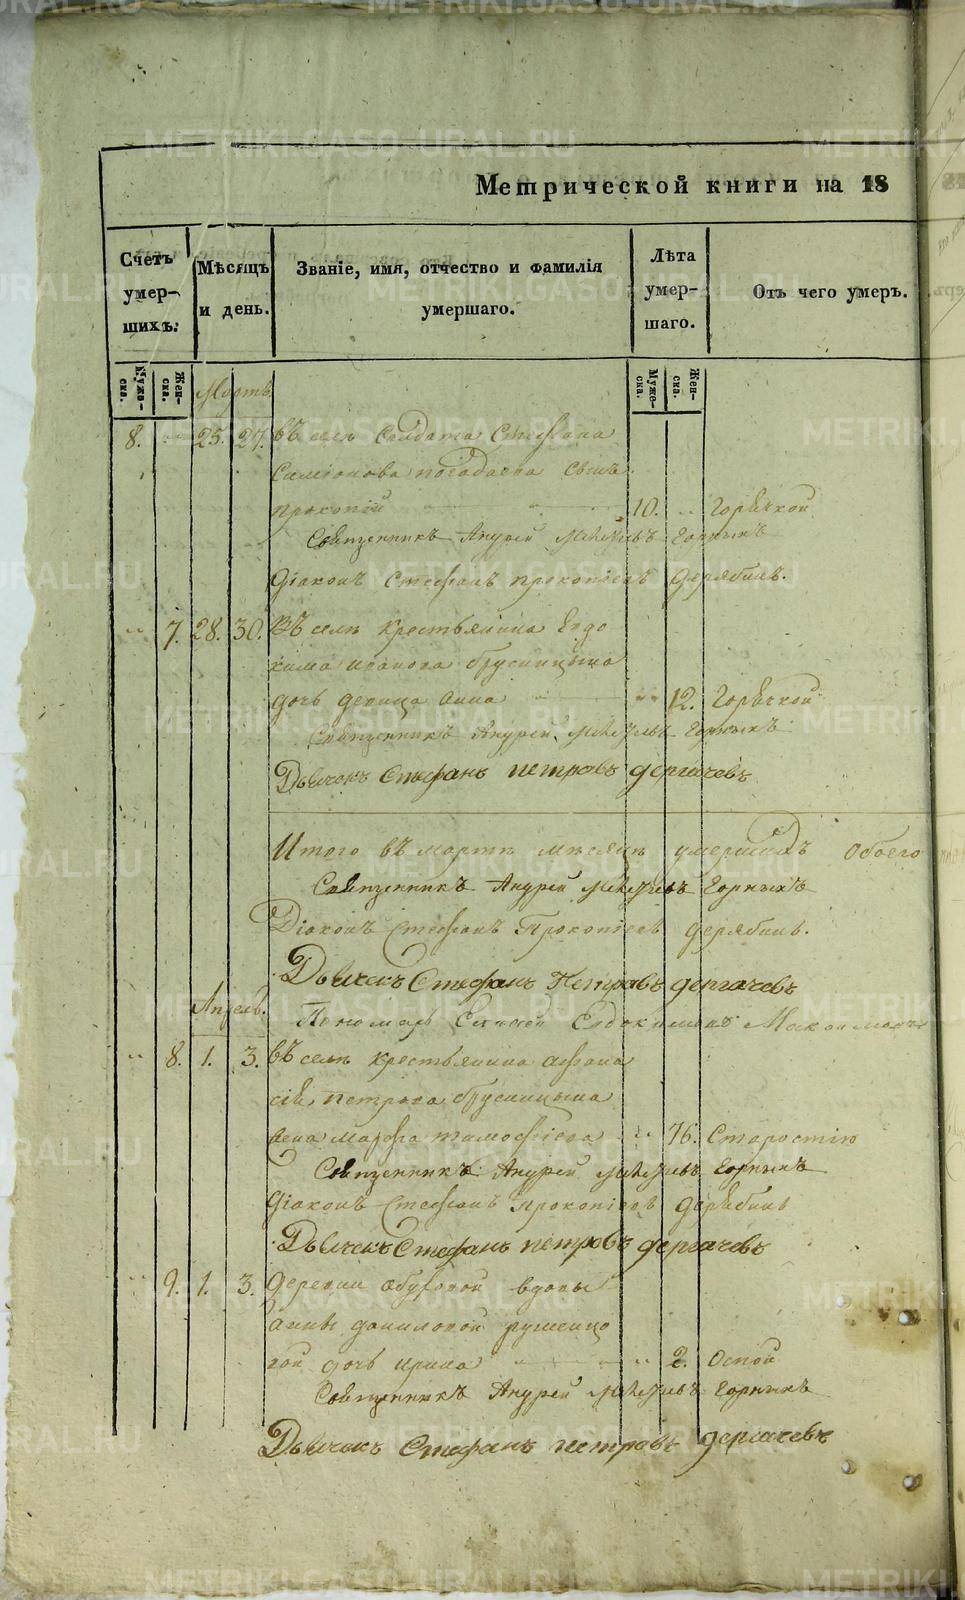 Метрической книги на 18
Счетъ умер- шихъ.
Мѣсяцъ и день.
Званіе, имя, отчество и фамилія умершаго.
Лѣта умер- шаго.
Отъ чего умеръ.
Муже- ска.
Жен- ска.
Муже- ска.
Жен- ска.
Мартъ.
8. 25. 27. въ селѣ Солдата Стефана
Симіонова сынъ
прокопій 10. Горячкой
Священникъ Андрей Горныхъ
Діаконъ Стефанъ прокопіевъ Дерябинъ.
7. 28. 30. Въ селѣ крестьянина Евдо
кима иванова брусницына
дочь девица анна 12. Горячкой
Священникъ Андрей Горныхъ
Дьячекъ Стефанъ петровъ дергачевъ
Итого въ мартѣ мѣсяцѣ умершихъ Обоего
Священникъ Андрей Горныхъ
Діаконъ Стефанъ Прокопіевъ Дерябинъ.
Дьячекъ Стефанъ Петровъ дергачевъ
Апрель.
Пономарь Евдокимовъ
8. 1. 3. въ селѣ крестьянина афана
сія петрова брусницына
жена марфа тимофіева 76. Старостію
Священникъ Андрей Горныхъ
Діаконъ Стефанъ прокопіевъ Дерябинъ
Дьячекъ Стефанъ петровъ дергачевъ
9. 1. 3. Деревни обуховой вдовы
Анны даниловой
дочь ирина 2. Оспой
Священникъ Андрей Горныхъ
Дьячекъ Стефанъ петровъ дергачевъ
METRIKI.GASO-URAL.RU